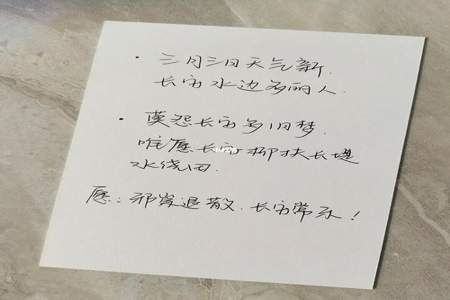 · 三月三日天气新.
长安水边多丽人.
· 莫怨长安多旧梦.
唯愿长安柳扶长堤
水绕田.
愿：邪祟退散、长安常乐！